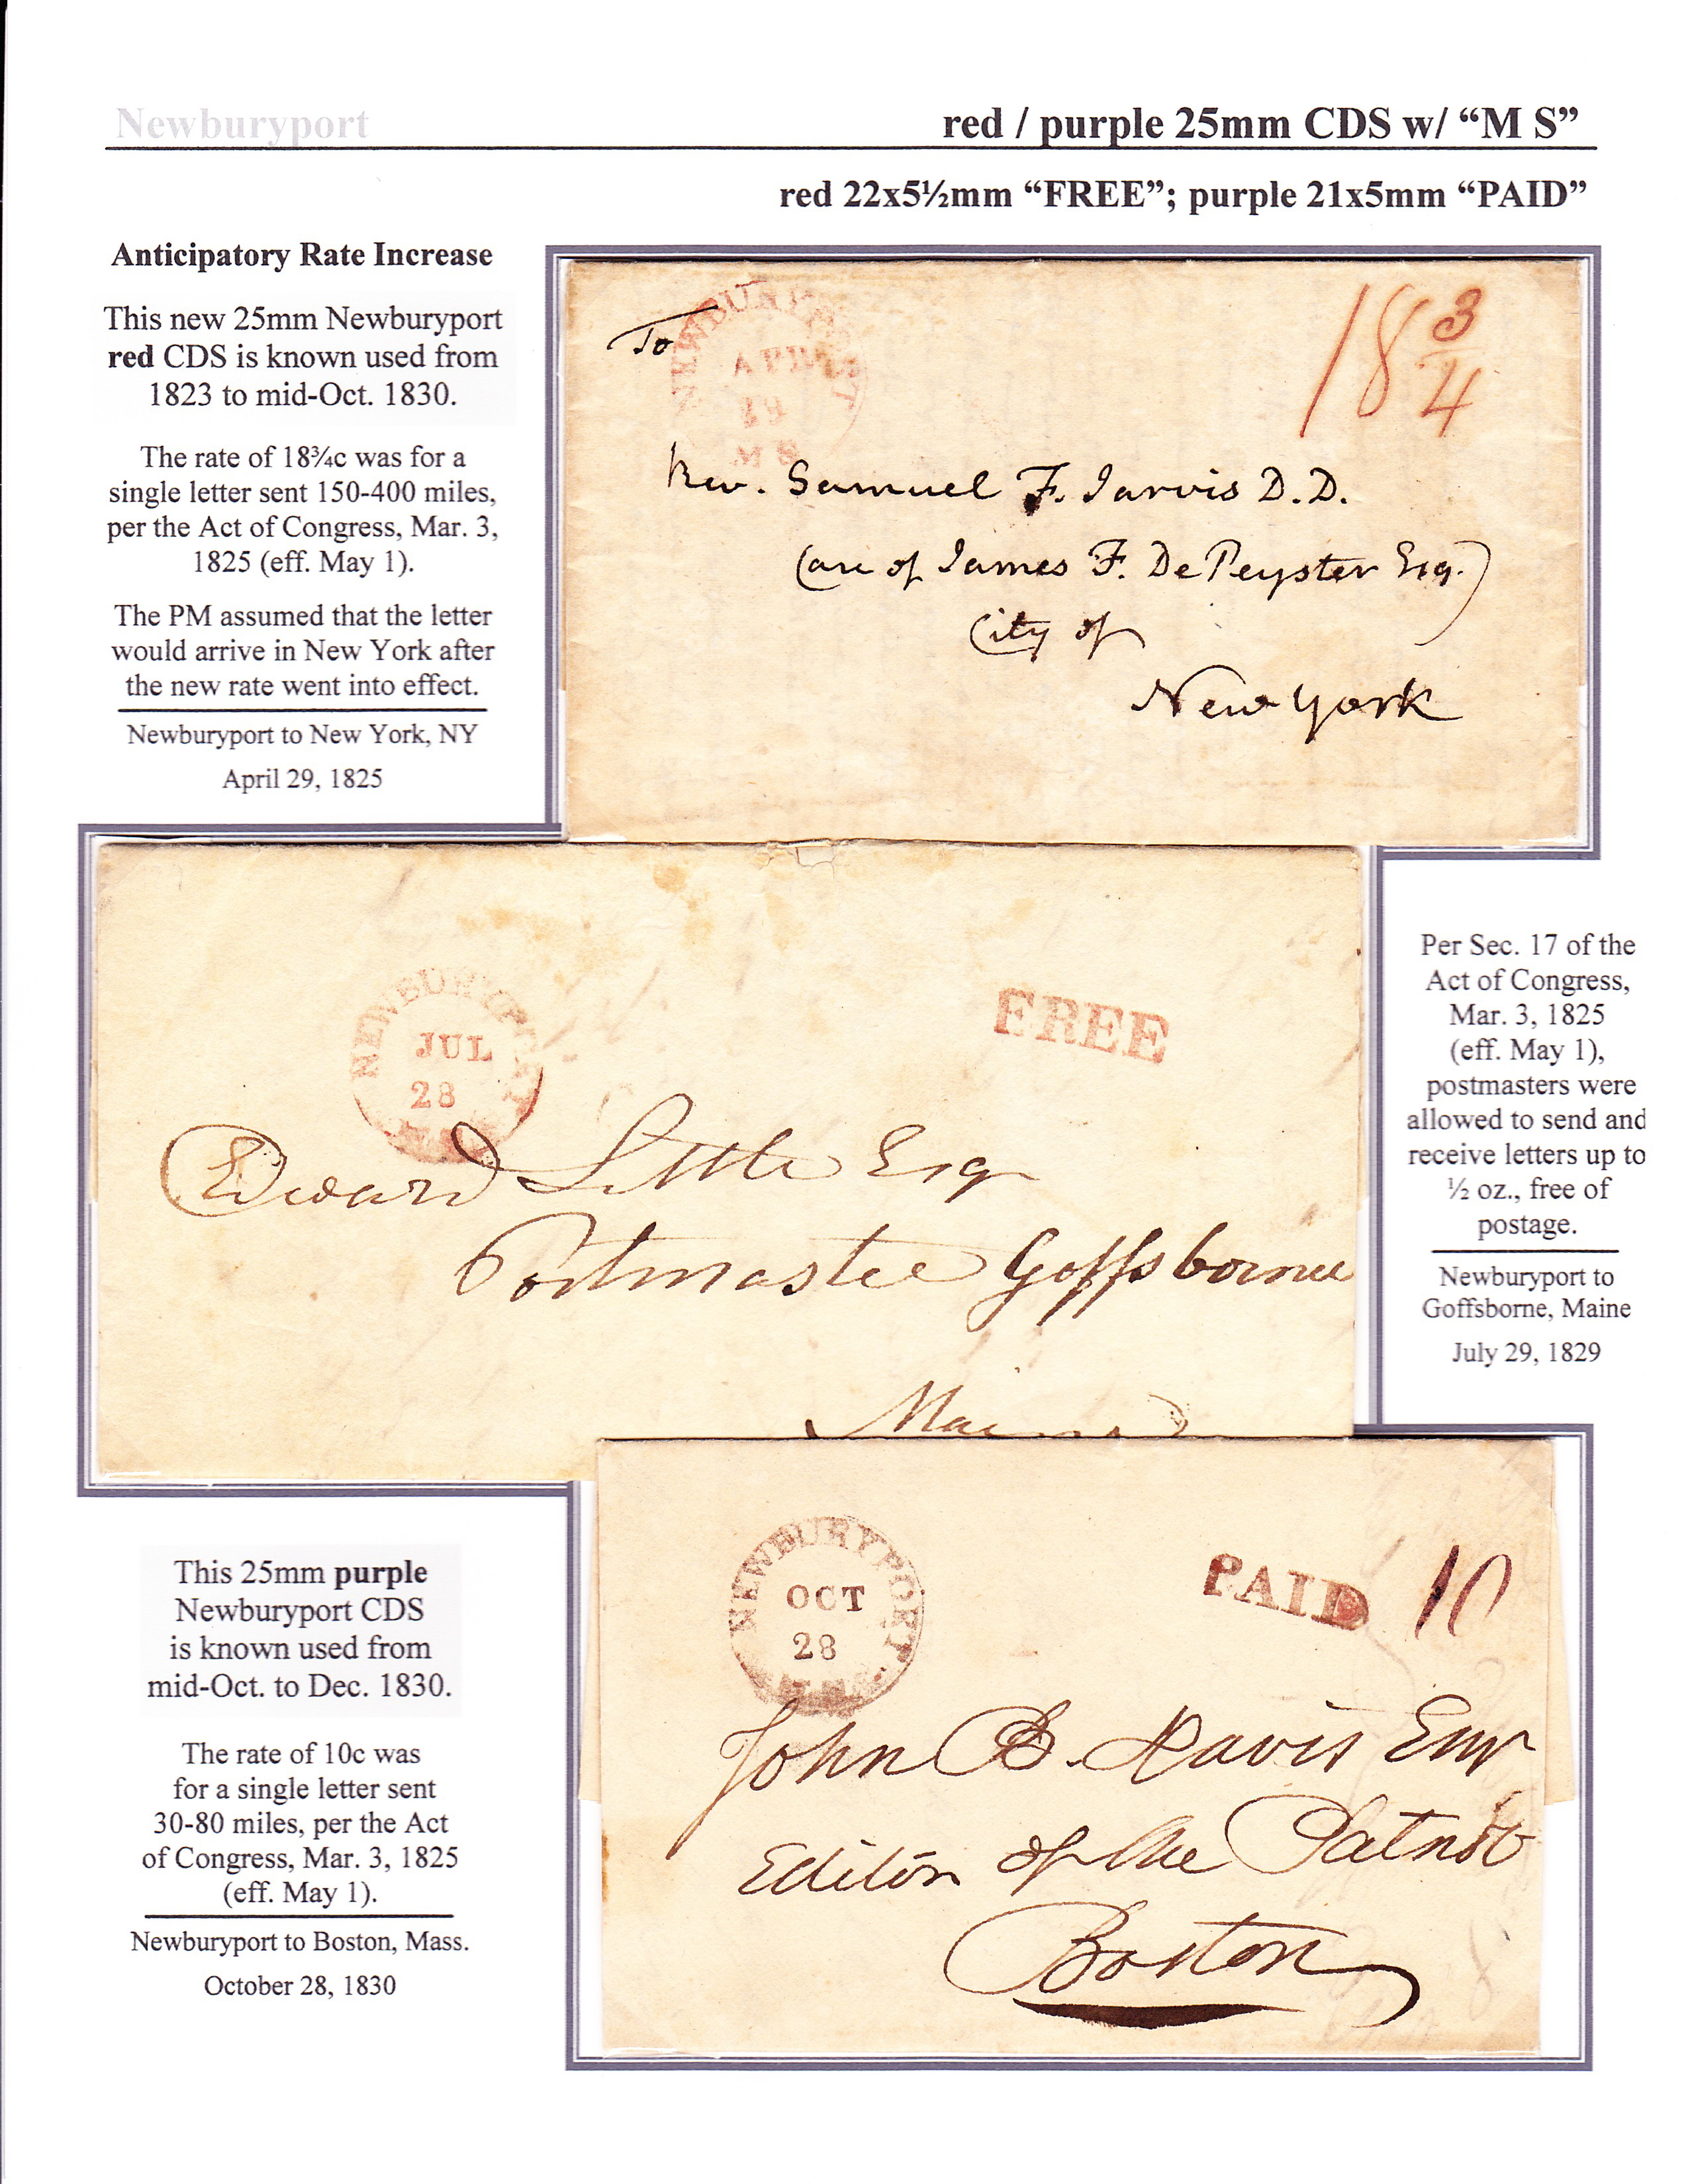 Newburyport
red / purple 25mm CDS w/ “M S”
red 22x5½mm “FREE”; purple 21x5mm “PAID”
Anticipatory Rate Increase
This new 25mm Newburyport
red CDS is known used from
1823 to mid-Oct. 1830.
The rate of 18¾c was for a
single letter sent 150-400 miles,
per the Act of Congress, Mar. 3,
1825 (eff. May 1).
The PM assumed that the letter
would arrive in New York after
the new rate went into effect.
Newburyport to New York, NY
April 29, 1825
NEWBURYPORT
APR
29
MS
18 3/4
To
Rev. Samuel F. Jarvis D.D.
(Care of James F. De Peyster Esq.)
City of
New York
NEWBURYPORT
JUL
28
FREE
Edward Little Esq
Postmaster Goffsborne
Maine
Per Sec. 17 of the
Act of Congress,
Mar. 3, 1825
(eff. May 1),
postmasters were
allowed to send and
receive letters up to
½ oz., free of
postage.
Newburyport to
Goffsborne, Maine
July 29, 1829
This 25mm purple
Newburyport CDS
is known used from
mid-Oct. to Dec. 1830.
The rate of 10c was
for a single letter sent
30-80 miles, per the Act
of Congress, Mar. 3, 1825
(eff. May 1).
Newburyport to Boston, Mass.
October 28, 1830
NEWBURYPORT
OCT
28
PAID 10
John B. Davis Esqr
Editor of the Patriot
Boston